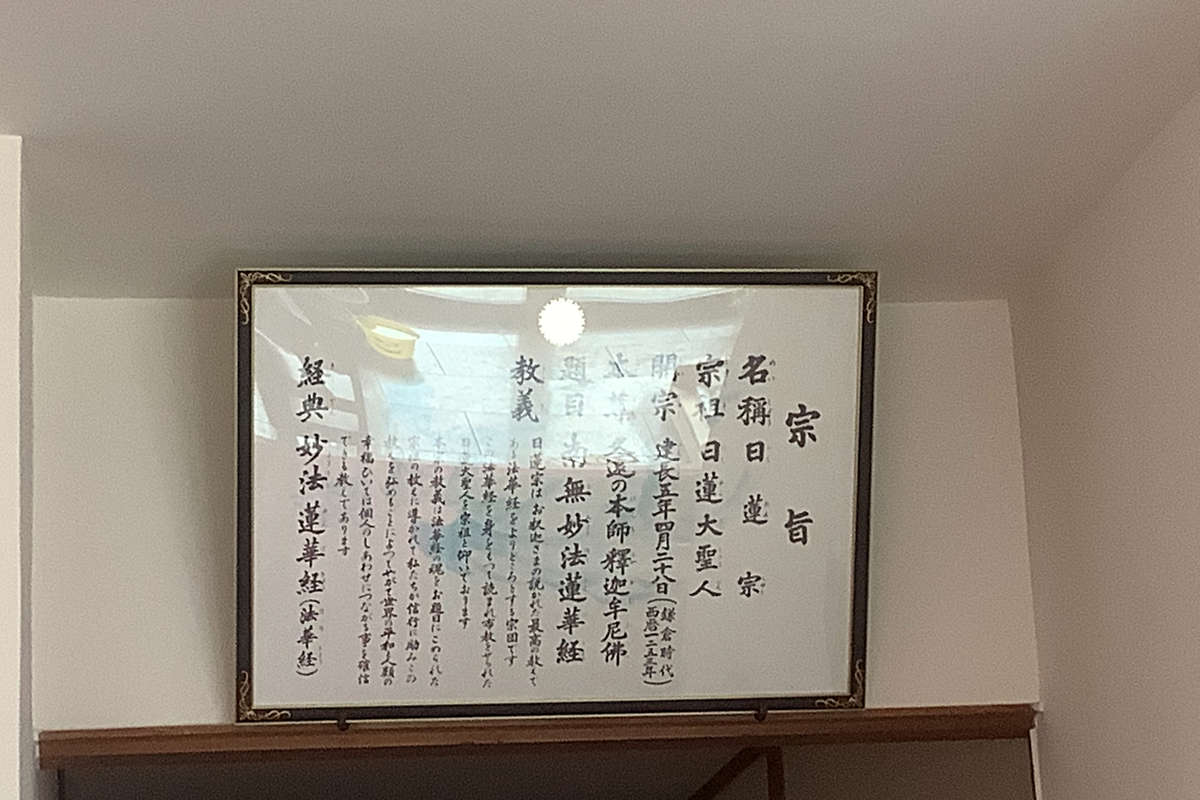 宗旨
名稱 日蓮宗
宗祖 日蓮大聖人
開宗 建長五年四月二十八日(鎌倉時代 西暦一二五三年)
の本師釋迦牟尼佛
題目 南無妙法蓮華経
教義 日蓮宗はお釈迦さまの説かれた最高の教えで
ある法華経をよりどころとする宗団です
法華経を身をもって読まれ布教をせられた
大聖人を宗祖と仰いでおります
の教義は法華経の魂をお題目にこめられた
の教えに導かれて私たちが信行に励みこの
教えを弘めることによってやがて世界の平和と人類の
幸福ひいては個人のしあわせにつながる事を確信
できる教えであります
経典 妙法蓮華経(法華経)